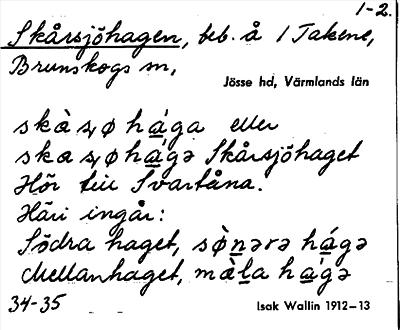 1-2.
Skårsjöhagen, beb. å 1 Takene,
Brunskogs sn,
Jösse hd, Värmlands län
skà ȿø há̱ga eller
ska ȿøhá̱gə Skårsjöhaget
Hör till Svartåna.
Häri ingår:
Södra haget, sø̀ṉərə há̱gə
Mellanhaget, mæ̀ḻa há̱gə
34-35
Isak Wallin 1912-13